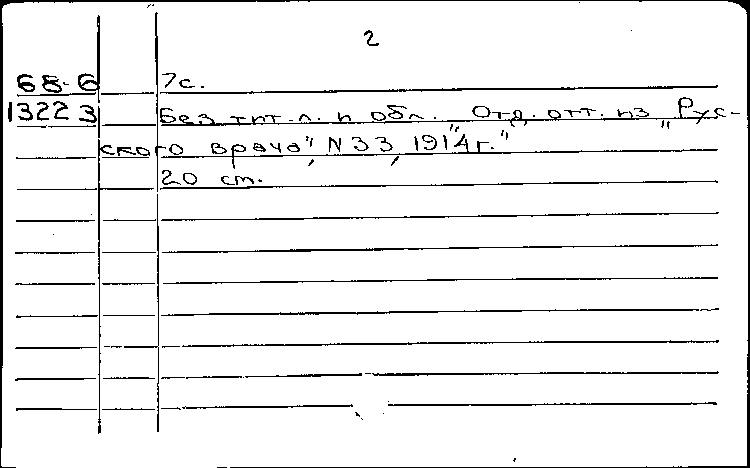 2
68-6 7с.
13223 Без тит. л. и обл. Отд. отт. из „Рус-
ского врача", N 33, 1914 г."
20 см.